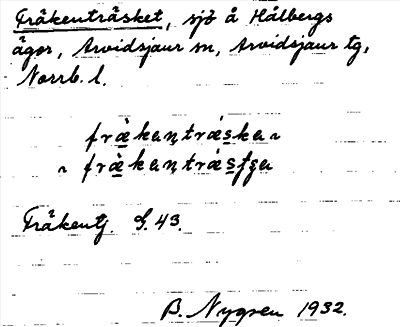 Fräkenträsket, sjö å Hålbergs
ägor, Arvidsjaur sn, Arvidsjaur tg,
Norrb. l.
fràkantráska ~
~ fràkantrás
Fräkentj. S. 43.
B. Nygren 1932.